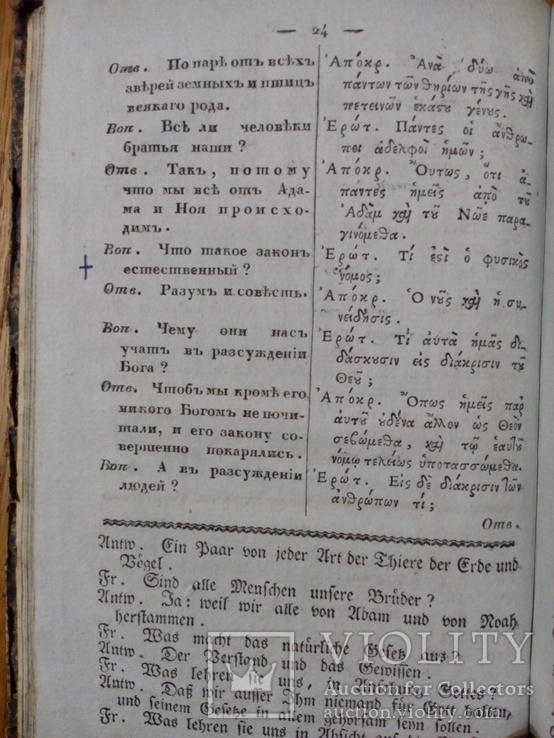 — 24 —
Отв. По парѣ отъ всѣхъ
звѣрей земныхъ и птицъ
всякаго рода.
Воп. Всѣ ли человѣки
братья наши?
Отв. Такъ, потому
что мы всѣ отъ Ада-
ма и Ноя происхо-
димъ.
Воп. Что такое законъ
естественный?
Отв. Разумъ и совѣсть.
Воп. Чему они насъ
учатъ въ разсужденіи
Бога?
Отв. Чтобъ мы кромѣ его
никого Богомъ не почи-
тали, и его закону со-
вершенно покарялись.
Воп. А въ разсужденіи
людей?
Ἀπόκρ. Ἀνὰ δύω ἀπὸ
πάντων τῶν θηρίων τῆς γῆς καὶ
πετεινῶν ἑκάστου γένους.
Ἐρώτ. Πάντες οἱ ἄνθρω-
ποι ἀδελφοὶ ἡμῶν;
Ἀπόκρ. Οὕτως, ὅτι ἅ-
παντες ἡμεῖς ἀπὸ τοῦ
Ἀδὰμ καὶ τοῦ Νῶε παρα-
γινόμεθα.
Ἐρώτ. Τί ἐστὶ ὁ φυσικὸς
νόμος;
Ἀπόκρ. Ὁ νοῦς καὶ ἡ συ-
νείδησις.
Ἐρώτ. Τί αὐτὰ ἡμᾶς δι-
δάσκουσιν εἰς διάκρισιν τοῦ
Θεοῦ;
Ἀπόκρ. Ὅπως ἡμεῖς παρ
αὐτοῦ οὐδένα ἄλλον ὡς Θεὸν
σεβώμεθα, καὶ τῷ ἑαυτοῦ
νόμῳ τελείως ὑποτασσώμεθα.
Ἐρώτ. Εἰς δὲ διάκρισιν τῶν
ἀνθρώπων τί;
Отв.
Antw. Ein Paar von jeder Art der Thiere der Erde und
Vögel.
Fr. Sind alle Menschen unsere Brüder?
Antw. Ja: weil wir alle von Adam und von Noah
herstammen.
Fr. Was macht das natürliche Gesetz aus?
Antw. Der Verstand und das Gewissen.
Fr. Was lehren sie uns, in Ansehung Gottes?
Antw. Daß wir ausser Ihm niemand für Gott halten,
und seinem Gesetze in allem gehorsam seyn sollen.
Fr. Was lehren sie uns in Absicht auf
VIOLITY
Auction for Collectors
auction.violity.com